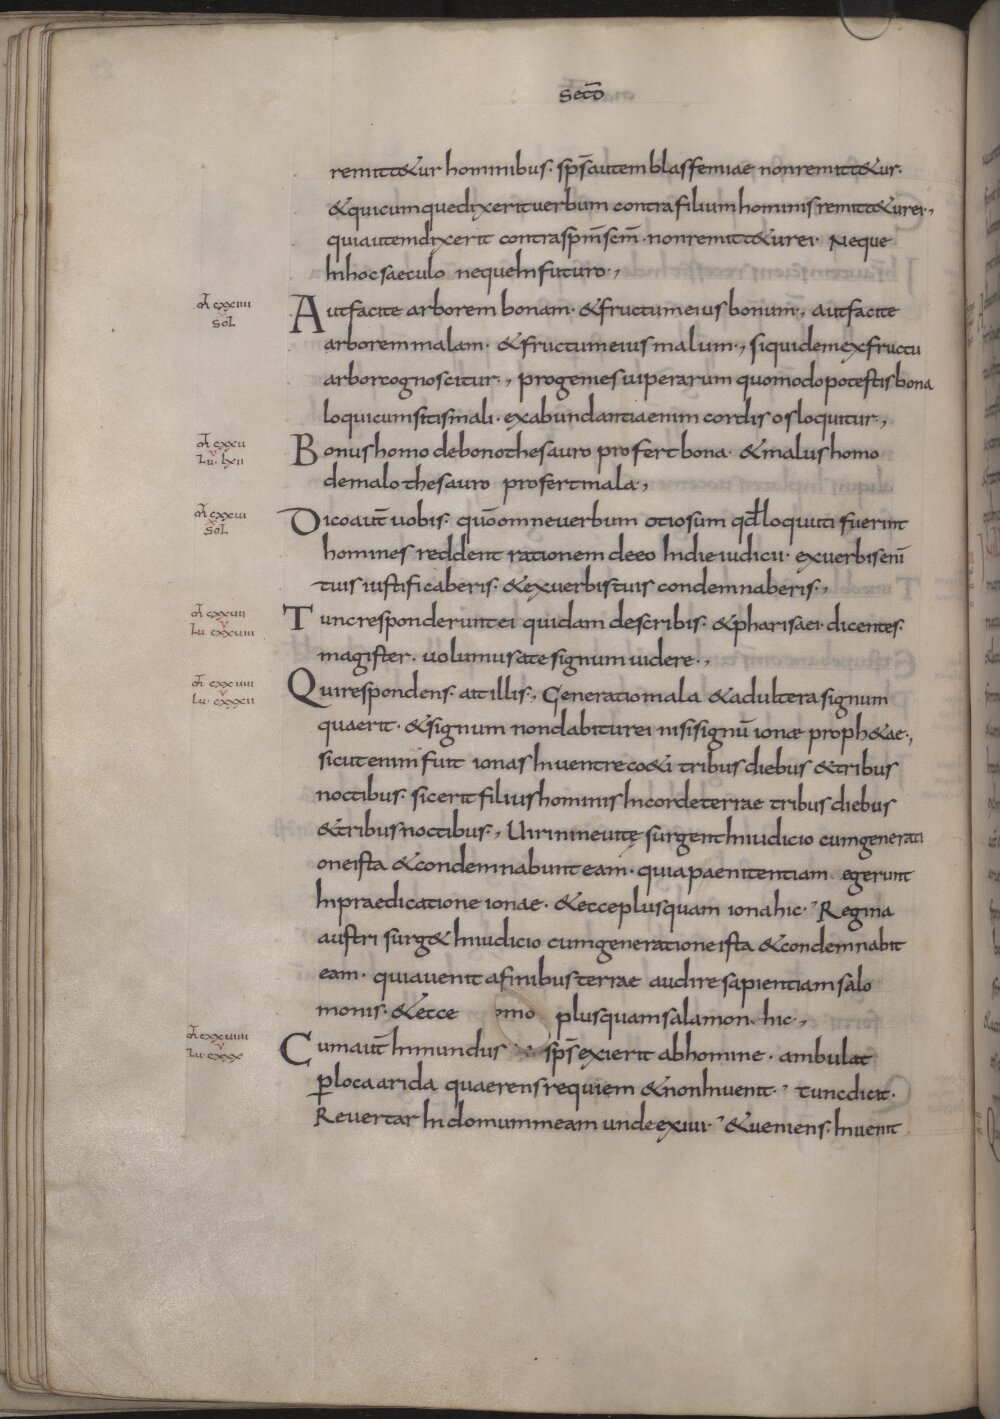 secd̄
remittetur hominibus· sps̄ autem blasfemiae non remittetur·
& quicumque dixerit uerbum contra filium hominis remitt&ur ei·,
qui autem dixerit contra spm̄ scm̄· non remitt&ur ei· Neque
In hoc saeculo neque In futuro·,
m̄t cxxiiii
sol
Aut facite arborem bonam· & fructum eius bonum·, aut facite
arborem malam· & fructum eius malum·, siquidem ex fructu
arbor cognoscitur·, progenies uiperarum quomodo potestis bona
loqui cum sitis mali· ex abundantia enim cordis os loquitur·,
m̄t cxxu
Lu· lxii
Bonus homo de bono thesauro profert bona· & malus homo
de malo thesauro profert mala·,
m̄t cxxui
sol
Dico aut̄ uobis· quō omne uerbum otiosum qd̄ loquuti fuerint
homines reddent rationem de eo In die iudicii· ex uerbis enī
tuis iustificaberis· & ex uerbis tuis condemnaberis·,
m̄t cxxuii
Lu cxxuiii
Tunc responderunt ei quidam de scribis· & pharisaei· dicentes·
magister· uolumus a te signum uidere·,
m̄t cxxuiii
Lu· cxxxii
Qui respondens· ait illis·, Generatio mala & adultera signum
quaerit· & signum non dabitur ei nisi signū ionæ proph&ae·,
sicut enim fuit ionas In uentre coeti tribus diebus & tribus
noctibus· sic erit filius hominis In corde terrae tribus diebus
& tribus noctibus·, Uiri nineuite surgent In iudicio cum generati
one ista & condemnabunt eam· quia paenitentiam egerunt
In praedicatione ionae· & ecce plus quam iona hic·' Regina
austri surg& In iudicio cum generatione ista & condemnabit
eam· quia uenit a finibus terrae audire sapientiam salo
monis· & ecce plus quam salamon hic·,
m̄t cxxuiiii
Lu· cxxx
Cum aut̄ Inmundus sps̄ exierit ab homine· ambulat
p̲ loca arida quaerens requiem & non Inuenit·' tunc dicit·
Reuertar In domum meam unde exiui·' & ueniens· Inuenit